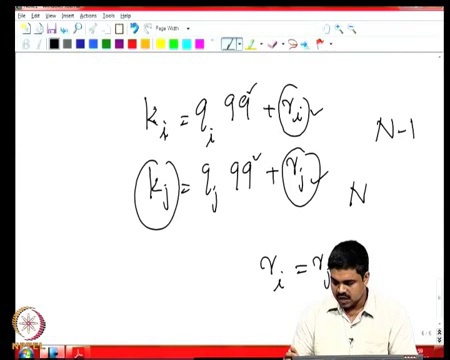 File Edit View Insert Actions Tools Help
Page Width
B
kᵢ = qᵢ 99 + rᵢ
N-1
kⱼ = qⱼ 99 + rⱼ
N
rᵢ = rⱼ